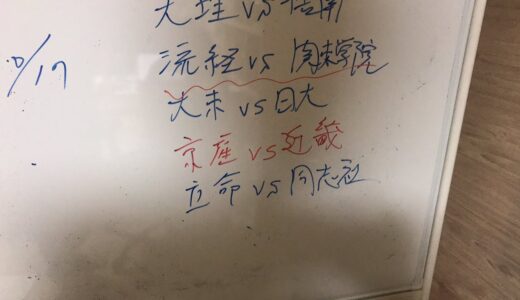 天理vs摂南
10/17
流経vs関東学院
大東vs日大
京産vs近畿
立命vs同志社